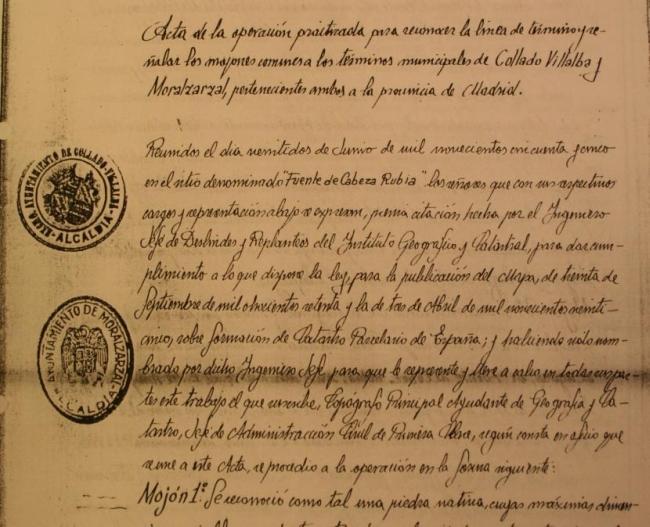 Acta de la operación practicada para reconocer la línea de término y se-
ñalar los mojones comunes a los términos municipales de Collado Villalba y
Moralzarzal, pertenecientes ambos a la provincia de Madrid.
AYUNTAMIENTO DE COLLADO-VILLALBA
ALCALDIA
Reunidos el día veintidos de Junio de mil novecientos cincuenta y cinco
en el sitio denominado "Fuente de Cabeza Rubia" los señores que con sus respectivos
cargos y representación abajo se expresan, previa citación hecha por el Ingeniero
Jefe de Deslindes y Replanteos del Instituto Geográfico y Catastral, para dar cum-
plimiento a lo que dispone la ley, para la publicación del Mapa, de treinta de
Septiembre de mil ochocientos setenta y la de tres de Abril de mil novecientos veinti-
cinco, sobre formación de Catastro Parcelario de España; y habiendo sido nom-
brado por dicho Ingeniero Jefe, para que le represente y lleve a cabo en todas sus par-
tes este trabajo el que suscribe, Topógrafo Principal Ayudante de Geografía y Ca-
tastro, Jefe de Administracción Civil de Primera Clase, según consta en oficio que
se une a este Acta, se procedio a la operación en la forma siguiente:
AYUNTAMIENTO DE MORALZARZAL
ALCALDIA
Mojón 1º. Se reconoció como tal una piedra nativa, cuyas máximas dimen-